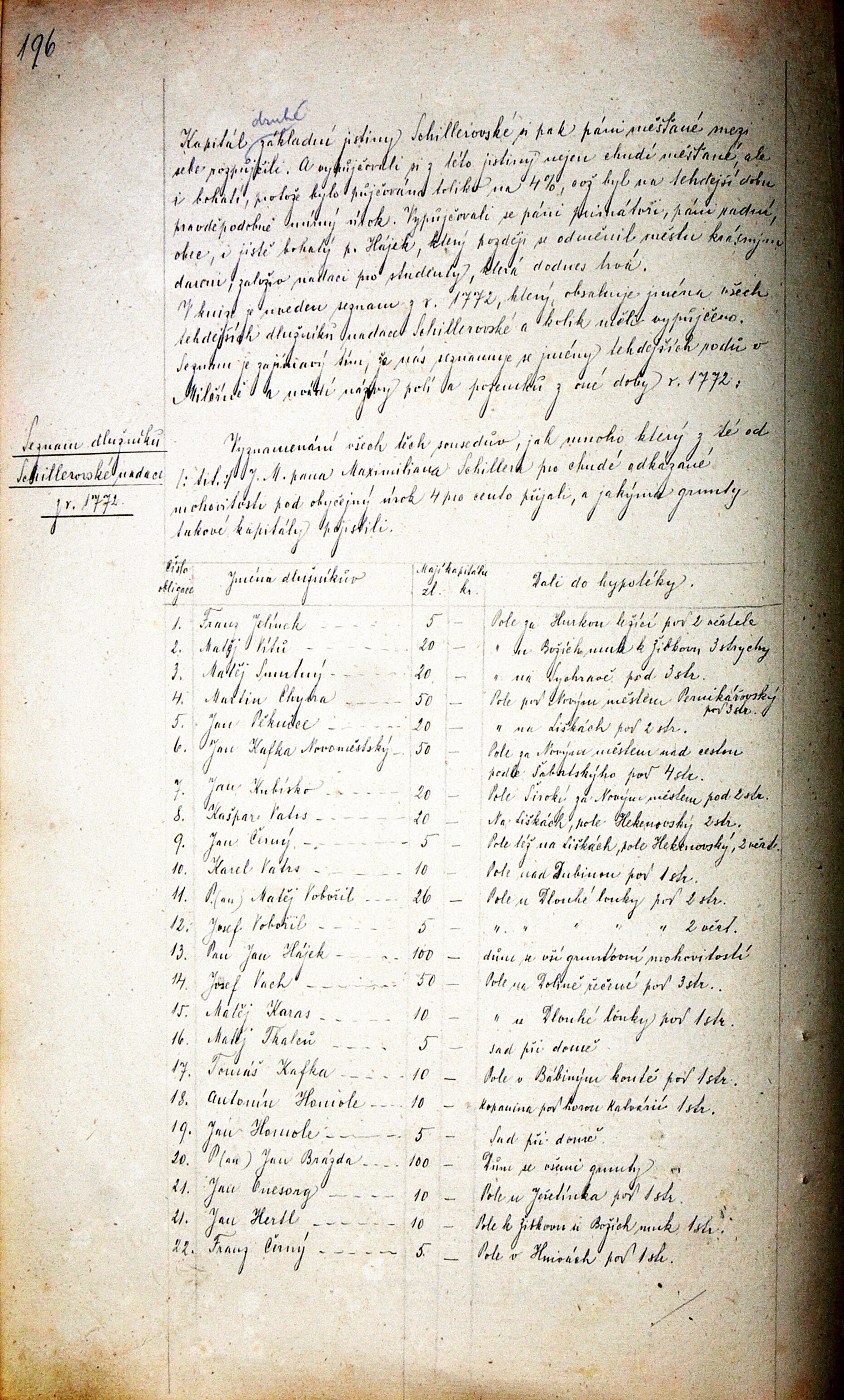 196
druhé
Kapitál základní jistiny Schillerovské si pak páni měšťané mezi
sebe rozpůjčili. A vypůjčovali si z této jistiny nejen chudí měšťané, ale
i bohatí, protože bylo půjčováno toliko na 4%, což byl na tehdejší dobu
pravděpodobně mírný úrok. Vypůjčovali se páni primátoři, páni radní,
obec, i jistě bohatý p. Hájek, který později se odměnil městu krásným
darem, založiv nadaci pro studenty, která dodnes trvá.
V knize je uveden seznam z r. 1772, který obsahuje jména všech
tehdejších dlužníků nadace Schillerovské a kolik měli vypůjčeno.
Seznam je zajímavý tím, že nás seznamuje se jmény tehdejších rodů v
Miletíně a uvádí názvy polí a pozemků z oné doby r. 1772:
Seznam dlužníků
Schillerovské nadace
z r. 1772.
Vyznamenání všech těch sousedův, jak mnoho který z té od
/: tit. :/ J. M. pana Maximiliana Schillera pro chudé odkázané
mohovitosti pod obyčejný úrok 4 pro cento přijali, a jakýma grunty
takové kapitály pojistili.
Číslo obligace Jména dlužníkův Mají kapitálu zl. kr. Dali do hypotéky.
1. Franz Jelínek 5 — Pole za Hurkou ležící pod 2 věrtele
2. Matěj Vítů 20 — " u Božích muk k Žižkovu 3 strychy
3. Matěj Smutný 20 — " na Sychravě pod 3 str.
4. Martin Chybra 50 — Pole pod Novým městem Pernikářovský pod 3 str.
5. Jan Pěknice 20 — " na Liškách pod 2 str.
6. Jan Kafka Novoměstský 50 — Pole za Novým městem nad cestou
podle Šabatskýho pod 4 str.
7. Jan Kubísko 20 — Pole Široké za Novým městem pod 2 str.
8. Kašpar Vatrs 20 — Na Liškách, pole Hekenovský 2 str.
9. Jan Černý 5 — Pole též na Liškách, pole Hekenovský, 2 věrt.
10. Karel Vatrs 10 — Pole nad Dubinou pod 1 str.
11. P.(an) Matěj Vobořil 26 — Pole u Dlouhé louky pod 2 str.
12. Josef Vobořil 5 — " " " " " 2 věrt.
13. Pan Jan Hájek 100 — dům s vší gruntovní mohovitostí
14. Josef Vach 50 — Pole na Dolině řečené pod 3 str.
15. Matěj Karas 10 — " u Dlouhé louky pod 1 str.
16. Matěj Thaleů 5 — sad při domě
17. Tomáš Kafka 10 — Pole v Bábiným koutě pod 1 str.
18. Antonín Homole 10 — Kopanina pod horou Kalvárií 1 str.
19. Jan Homole 5 — Sad při domě
20. P(an) Jan Brázda 100 — Dům se všemi grunty
21. Jan Onesorg 10 — Pole u Ješetínka pod 1 str.
21. Jan Hertl 10 — Pole k Žižkovu u Božích muk 1 str.
22. Franz Černý 5. — Pole v Hnivách pod 1 str.